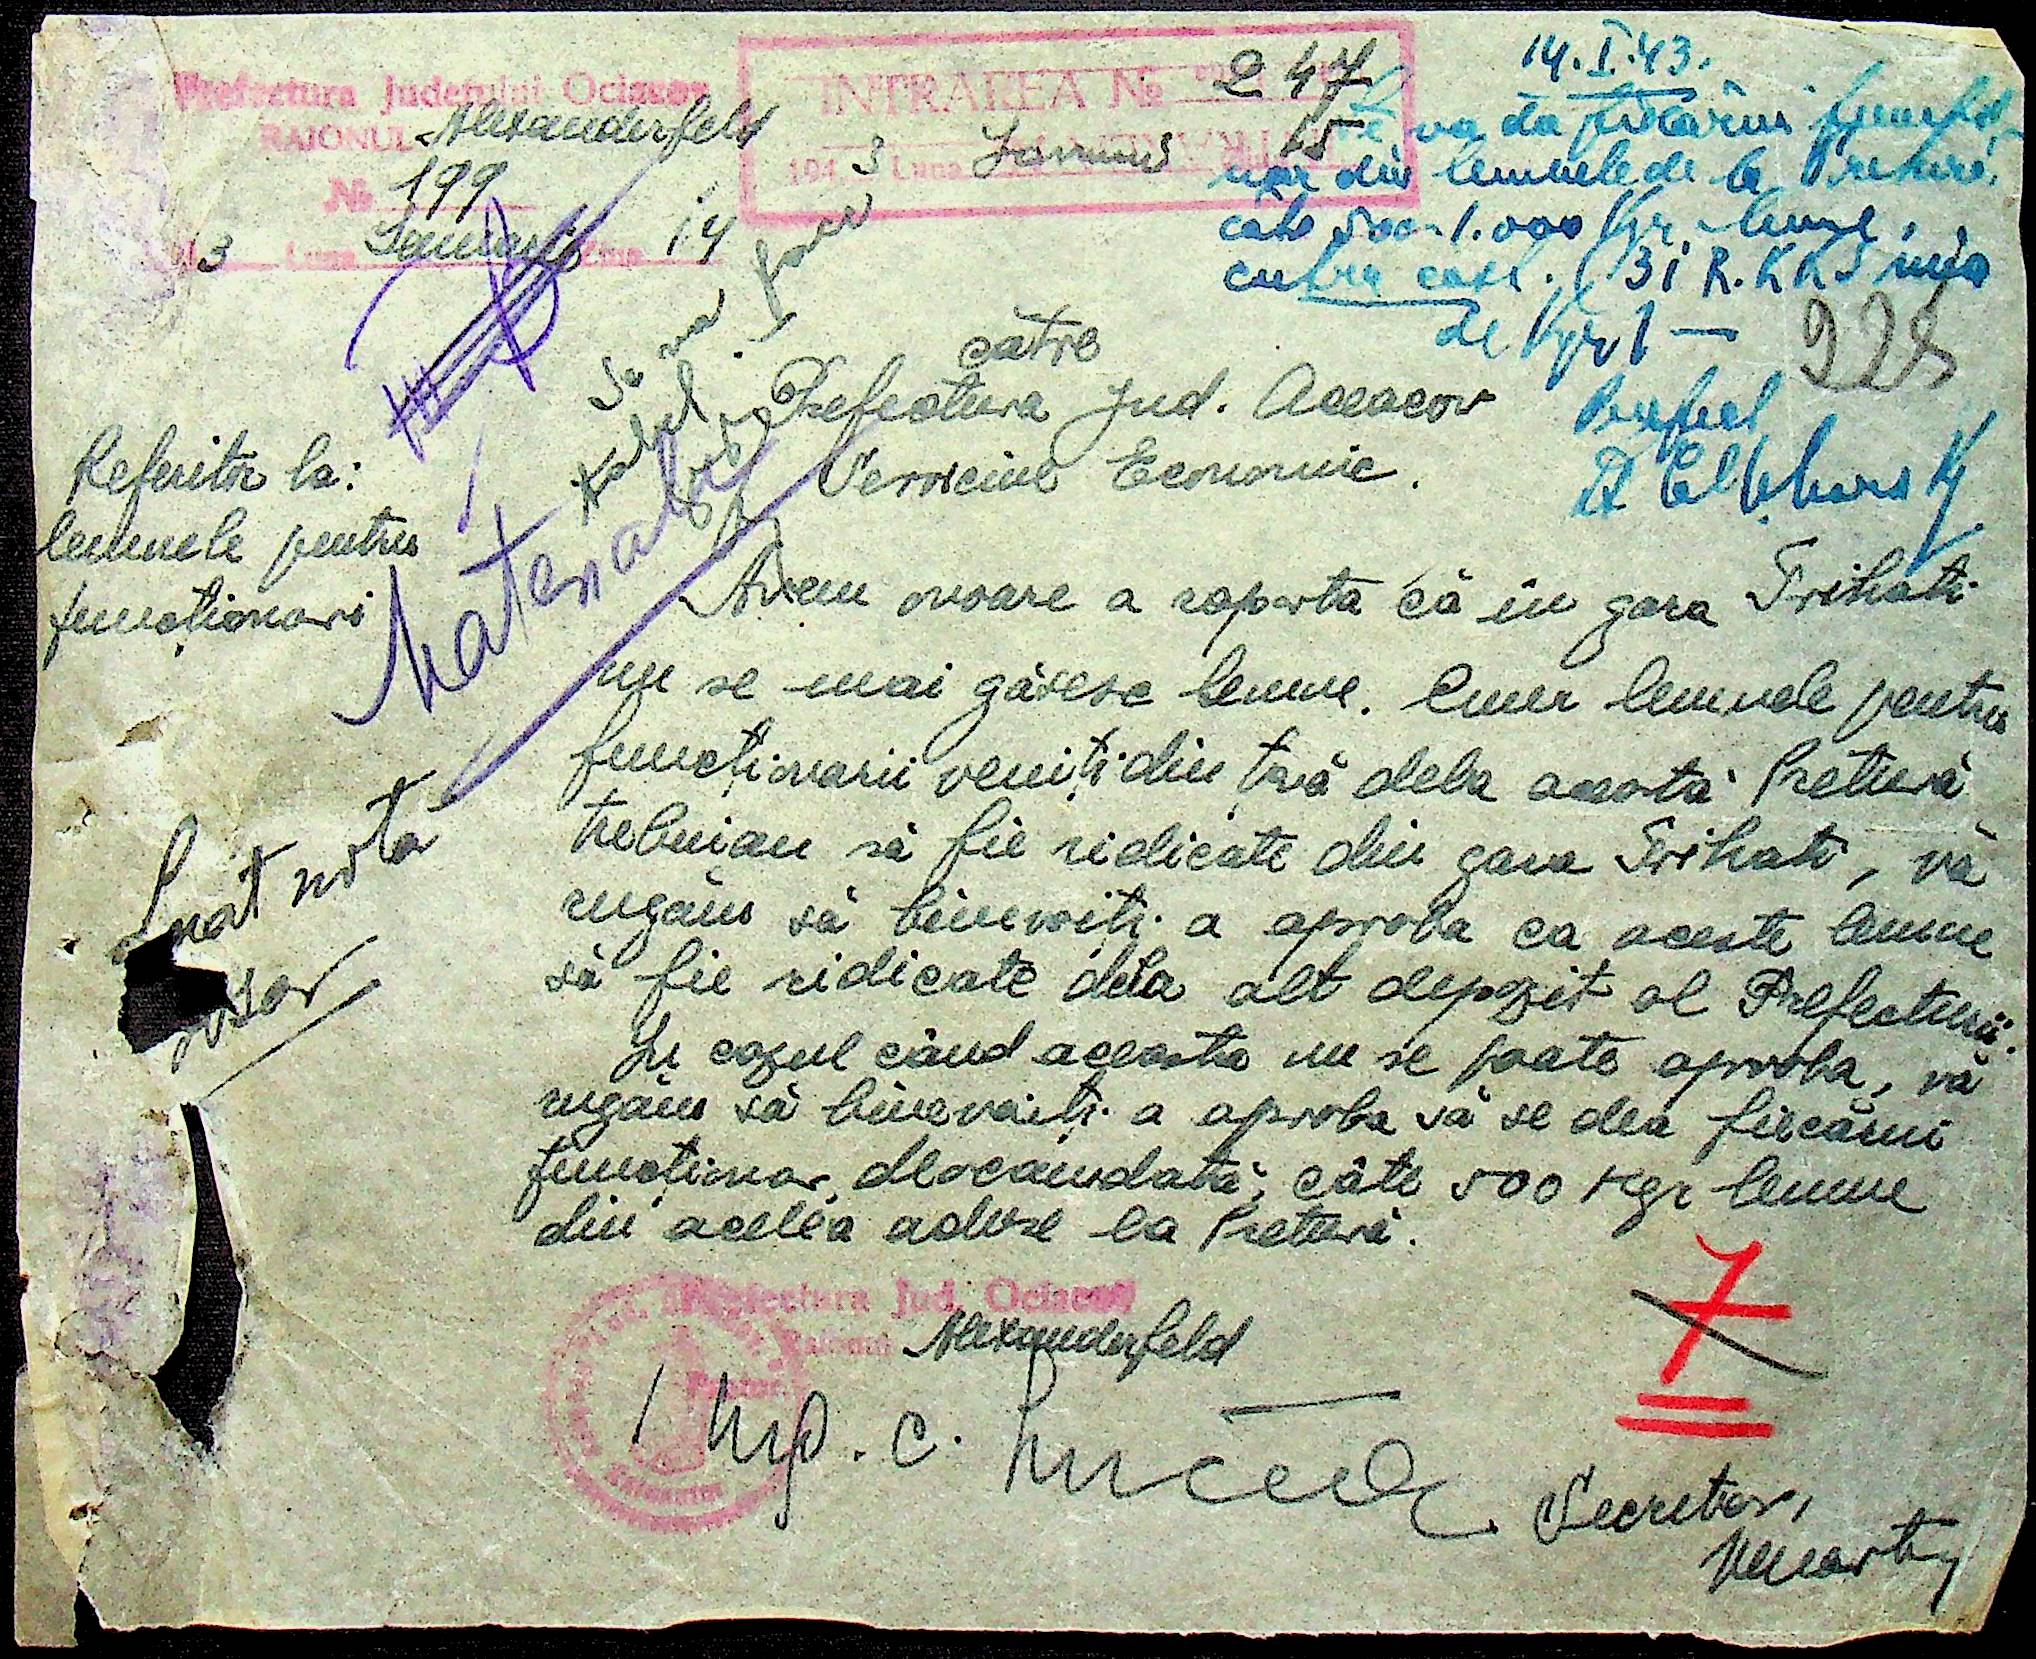 Prefectura Județului Ociacov
RAIONUL Alexanderfeld
№ 199
3 Luna Ianuarie Ziua 14
INTRAREA № 247
194 3 Luna Ianuarie 15
14.I.43.
Se va da fiecărui funcțio-
nar din lemnele de la Pretură
câte 500-1.000 Kgr. lemne,
contra cost. (31 R.KKS mia
de Kgr)
228
Prefect
către
Prefectura Jud. Oceacov
Serviciul Economic.
Referitor la:
lemnele pentru
funcționari
Materiale
Se va face
Luat notă
Avem onoare a raporta că în gara Trihati
nu se mai găsesc lemne. Cum lemnele pentru
funcționarii veniți din țară dela această Pretură
trebuiau să fie ridicate din gara Trihati, vă
rugăm să binevoiți a aproba ca aceste lemne
să fie ridicate dela alt depozit al Prefecturii.
În cazul când aceasta nu se poate aproba, vă
rugăm să binevoiți a aproba să se dea fiecărui
funcționar, deocamdată, câte 500 Kgr lemne
din acelea aduse la Pretură.
Prefectura Jud. Ociacov
Raionul Alexanderfeld
Pretor
Ing. C.
7
Secretar,